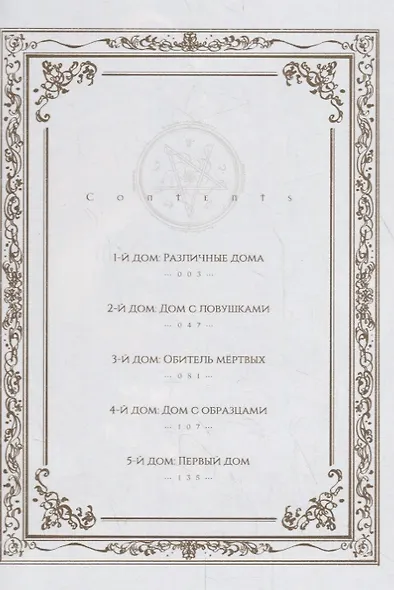 Contents
1-й дом: Различные дома
— 003 ···
2-й дом: Дом с ловушками
— 047 ···
3-й дом: Обитель мёртвых
— 081 ···
4-й дом: Дом с образцами
— 107 ···
5-й дом: Первый дом
— 135 ···